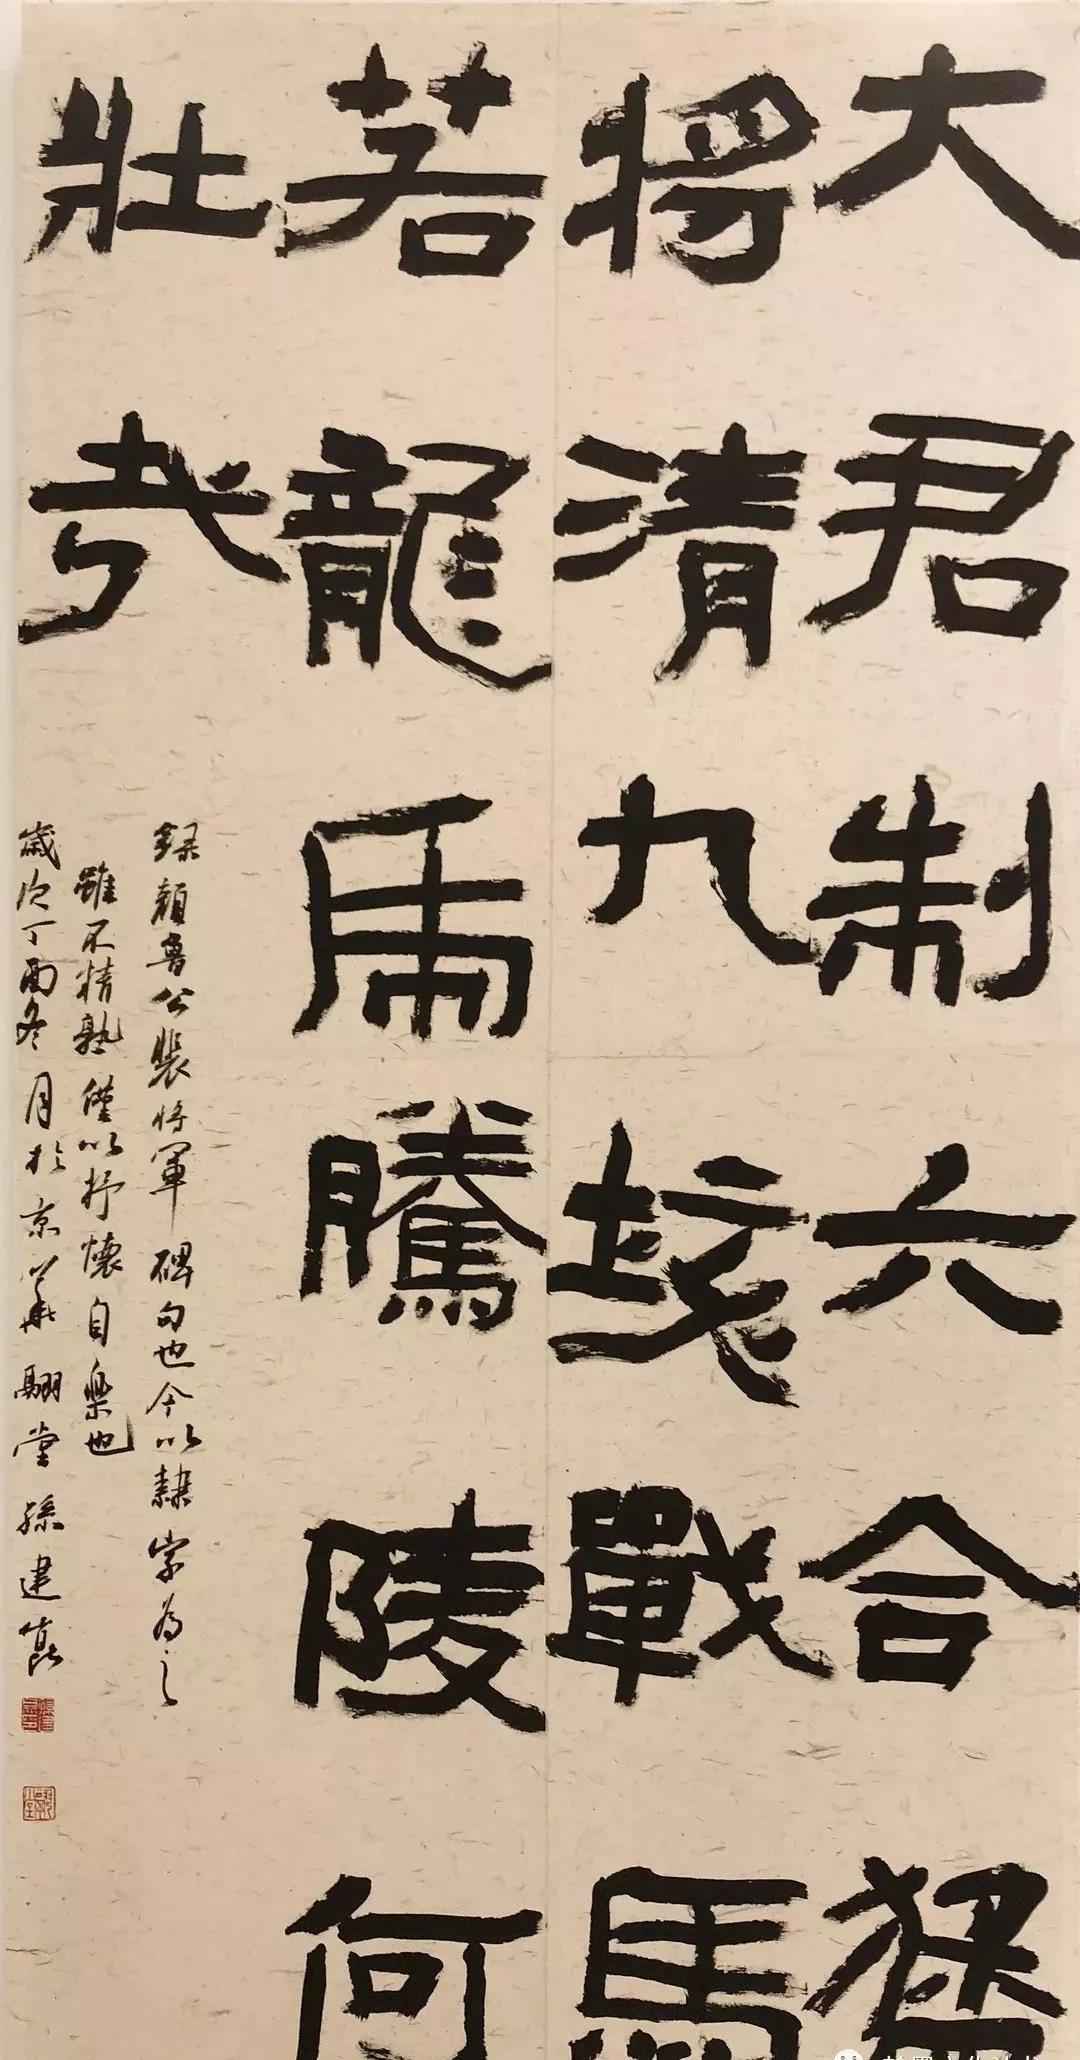 大君制六合猛
将清九垓戰馬
若龍虎騰陵何
壯哉
録顏魯公裴将軍碑句也今以隸字為之
雖不精熟僅以抒懷自樂也
歲次丁酉冬月於京華駟堂孫建